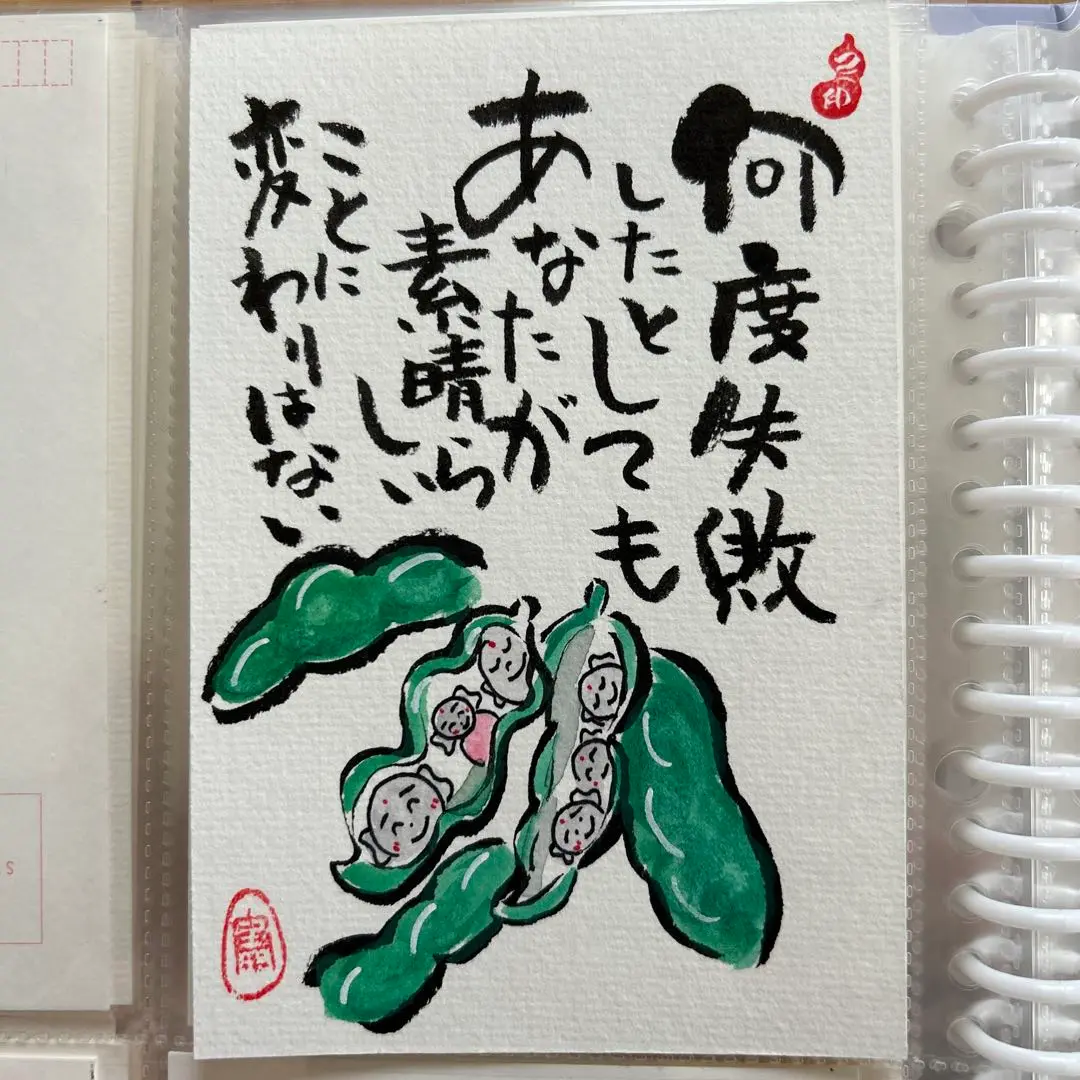 何度失敗
したとしても
あなたが
素晴らしい
ことに
変わりはない
S